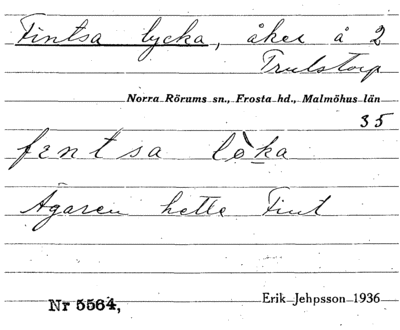 Fintsa lycka, åker å 2
Trulstorp
Norra Rörums sn., Frosta hd., Malmöhus län
35
fɪntsa lòka
Ägaren hette Fint
Nr 5564,
Erik Jehpsson 1936